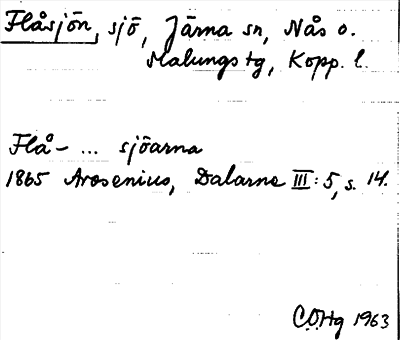 Flåsjön, sjö, Järna sn, Nås o.
Malungs tg, Kopp. l.
Flå- ... sjöarna
1865 Arosenius, Dalarne III: 5, s. 14.
C.O.Hg 1963